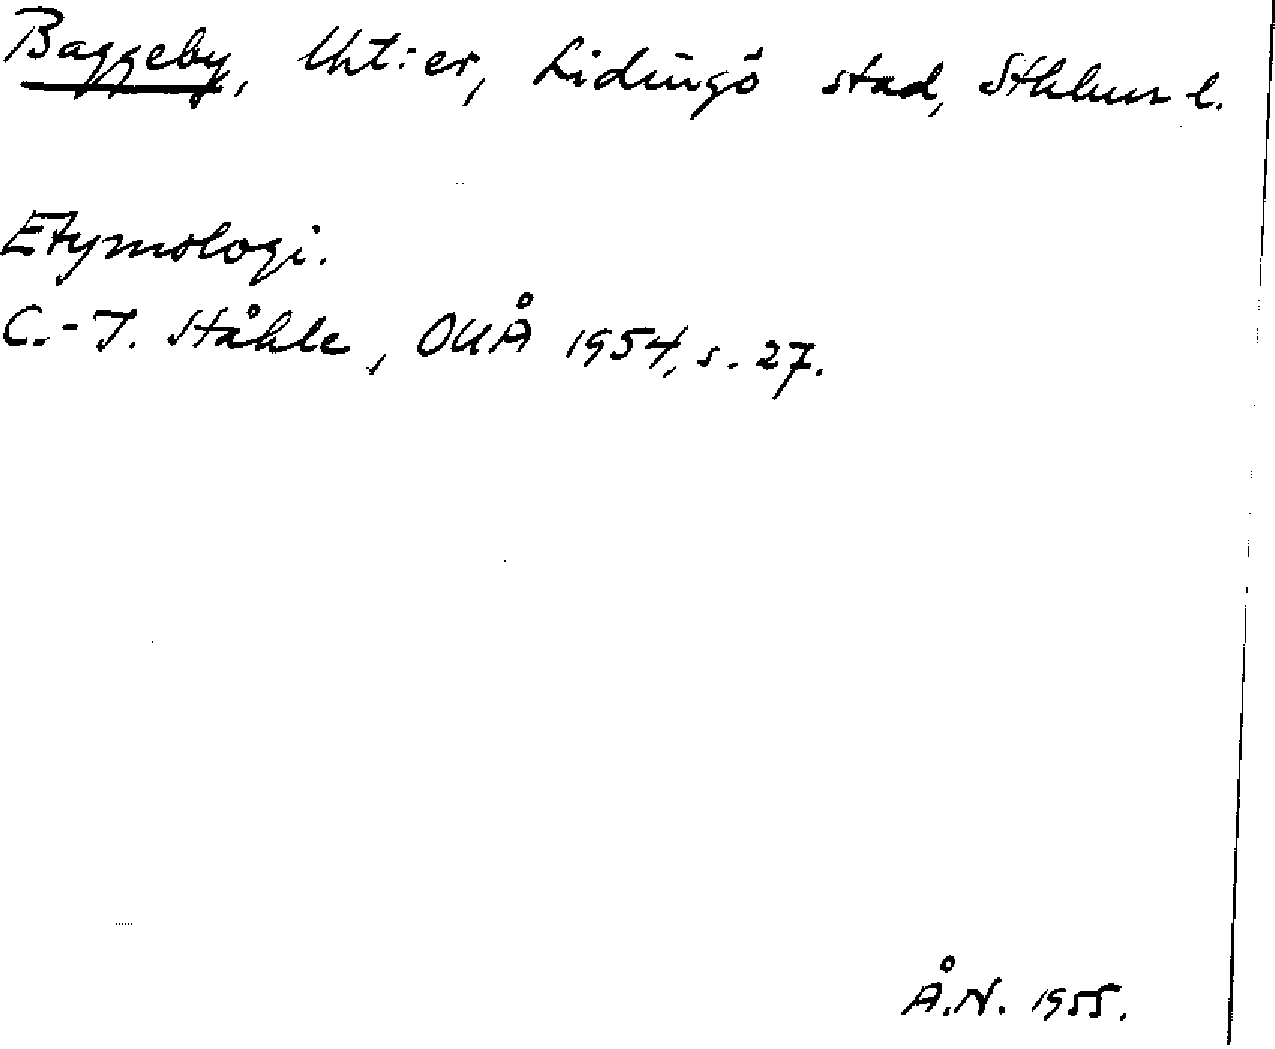 Baggeby, kvt:er, Lidingö stad, Sthlms l.
Etymologi.
C.-I. Ståhle, OUÅ 1954, s. 27.
Å.N. 1955.